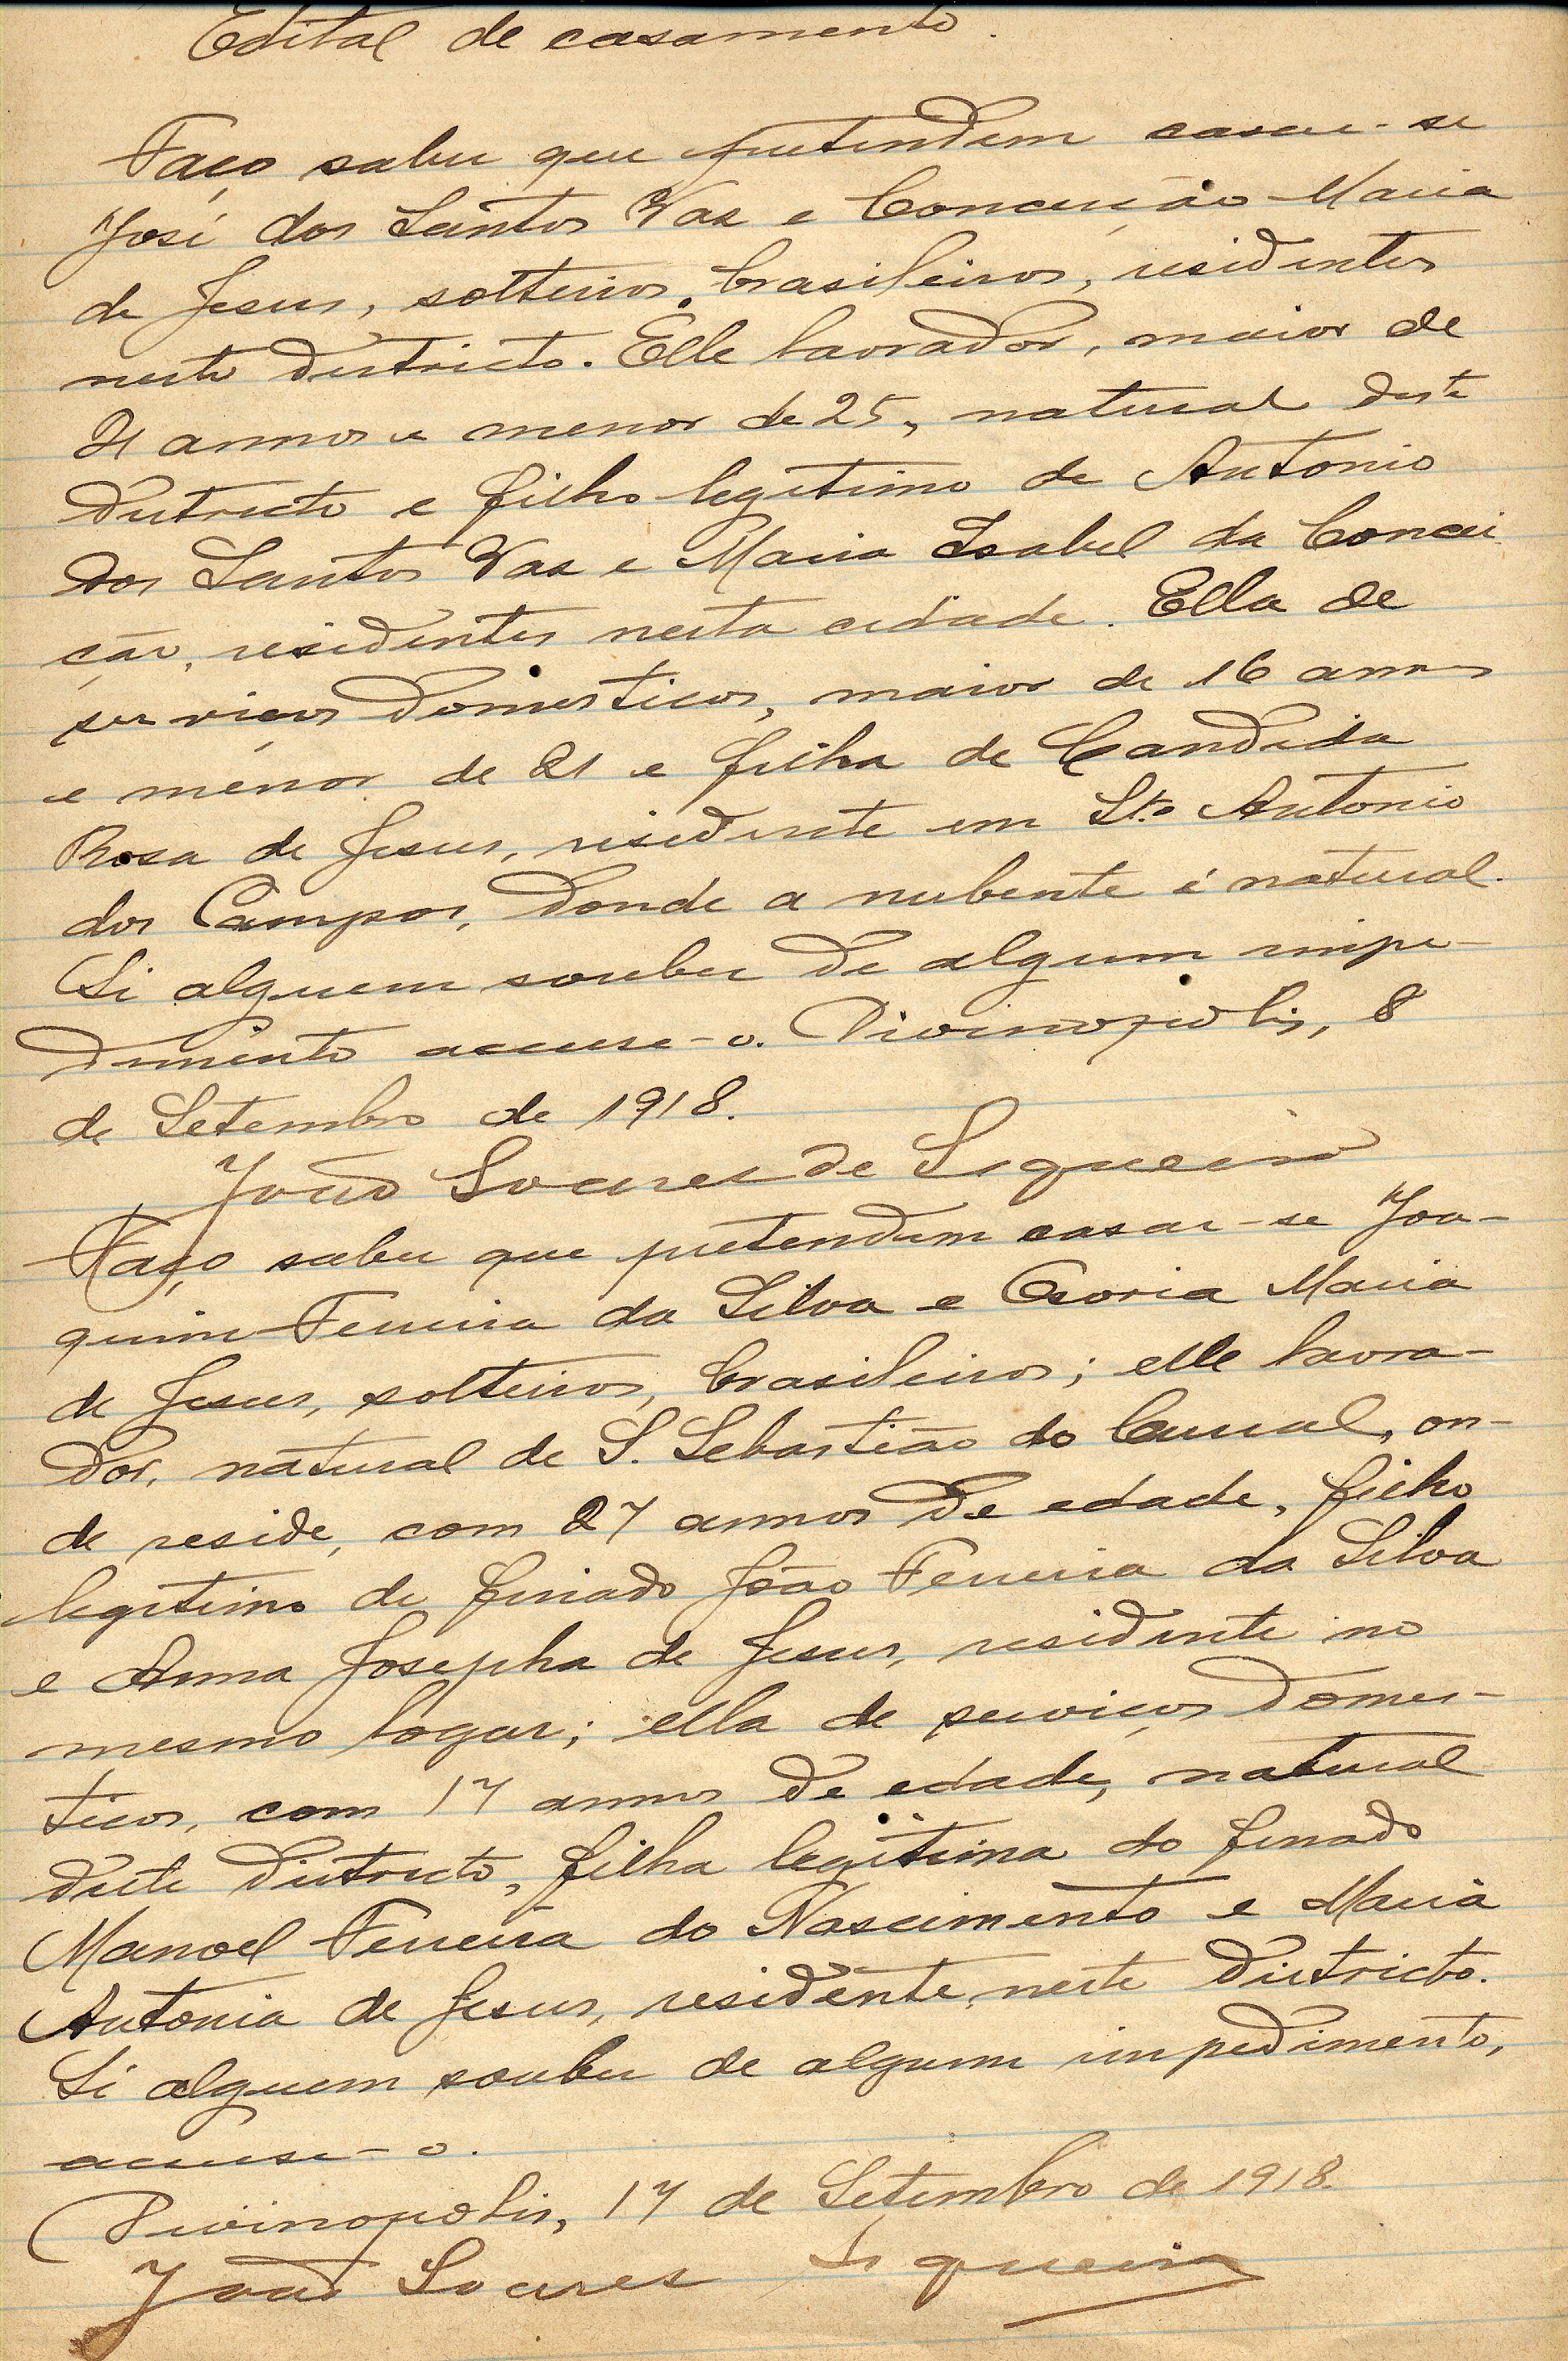 Edital de casamento.
Faço saber que pretendem casar-se
José dos Santos Vaz e Conceição Maria
de Jesus, solteiros, brasileiros, residentes
neste districto. Elle lavrador, maior de
21 annos e menor de 25, natural deste
districto e filho legitimo de Antonio
dos Santos Vaz e Maria Isabel da Concei
ção, residentes nesta cidade. Ella de
serviços domesticos, maior de 16 annos
e menor de 21 e filha de Candida
Rosa de Jesus, residente em Sto Antonio
dos Campos, donde a nubente é natural.
Si alguem souber de algum impe-
dimento accuse-o. Divinopolis, 8
de Setembro de 1918.
João Soares de Siqueira
Faço saber que pretendem casar-se Joa-
quim Ferreira da Silva e Osoria Maria
de Jesus, solteiros, brasileiros; elle lavra-
dor, natural de S. Sebastião do Curral, on-
de reside, com 27 annos de edade, filho
legitimo de finado João Ferreira da Silva
e Anna Josepha de Jesus, residente no
mesmo logar; ella de serviços domes-
ticos, com 17 annos de edade, natural
deste districto, filha legitima do finado
Manoel Ferreira do Nascimento e Maria
Antonia de Jesus, residente neste districto.
Si alguem souber de algum impedimento,
accuse-o.
Divinopolis, 17 de Setembro de 1918.
João Soares Siqueira